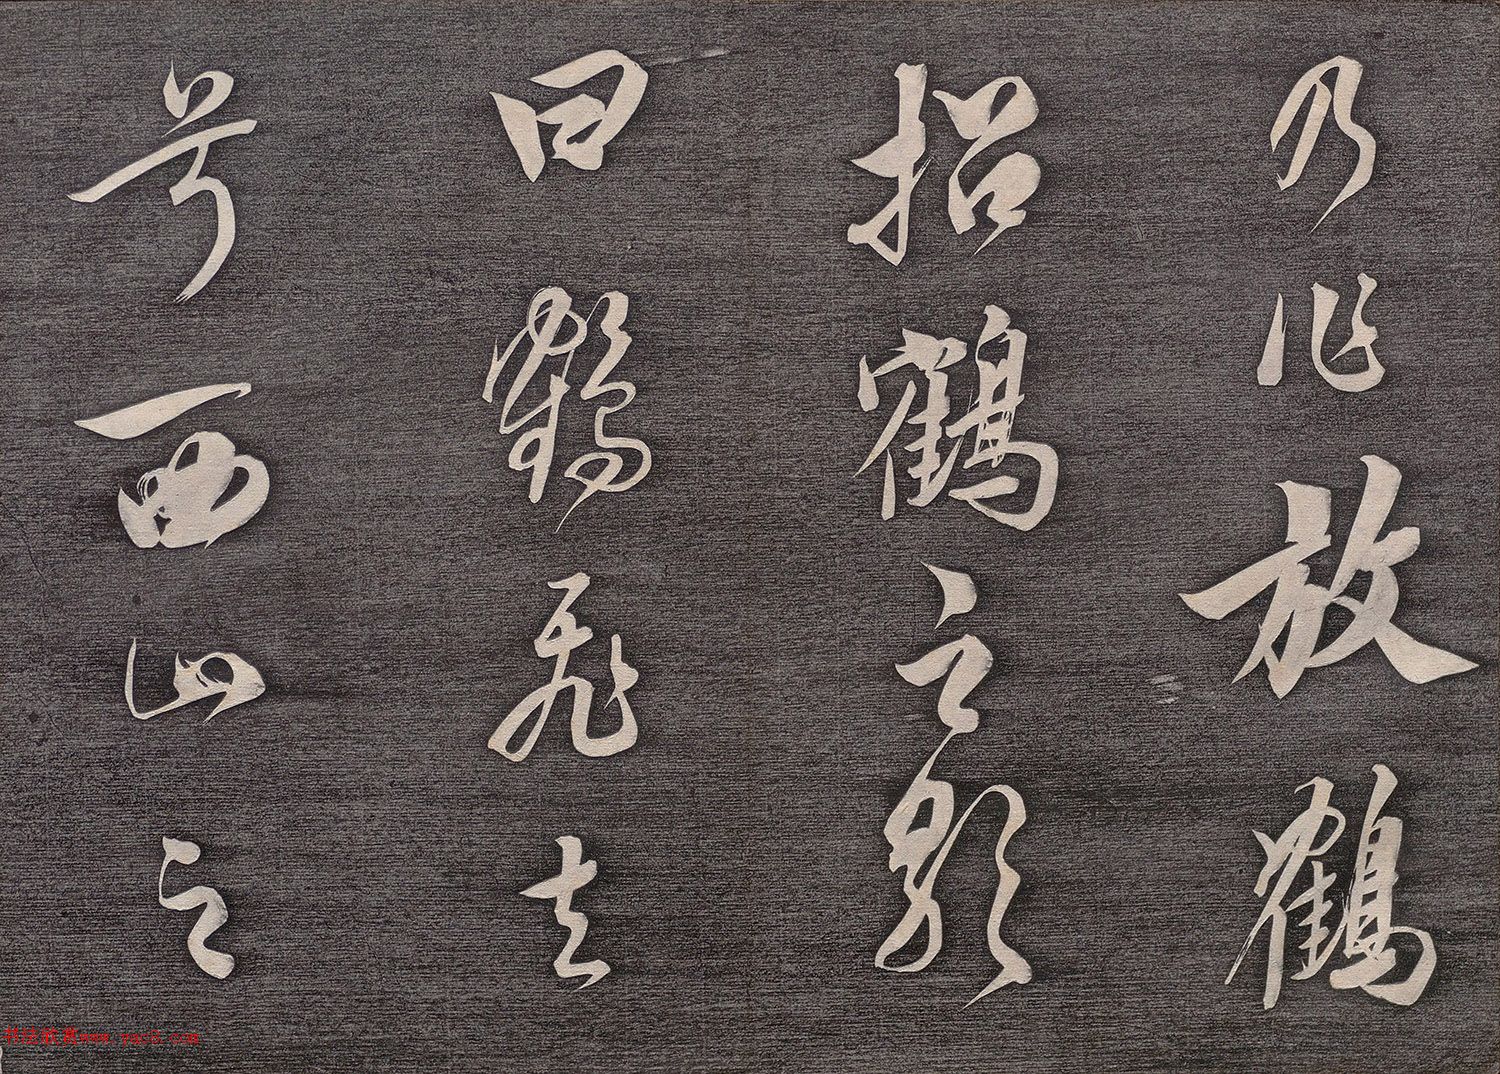 乃作放鶴
招鶴之歌
曰鶴飛去
兮西山之
书法欣赏www.yac8.com